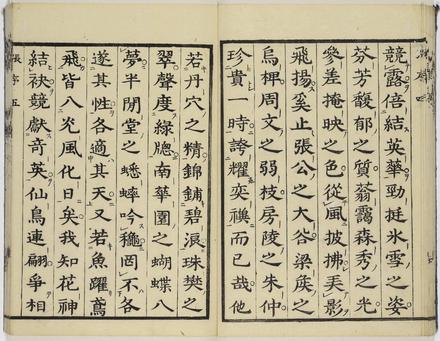 競露倍結英華勁挺氷雪之姿
芬芳馥郁之質蓊靄森秀之光
參差掩映之色從風披拂美影
飛揚奚止張公之大谷梁侯之
烏椑周文之弱枝房陵之朱仲
珍貴一時誇耀奕禩而已哉他
若丹穴之精錦鋪碧浪珠樊之
翠聲度綠牕南華園之蝴蝶八
夢半閒堂之蟋蟀吟穐罔不各
遂其性各適其天又若魚躍鳶
飛皆八光風化日矣我知花神
結袂競獻奇英仙鳥連翩爭相
張序五